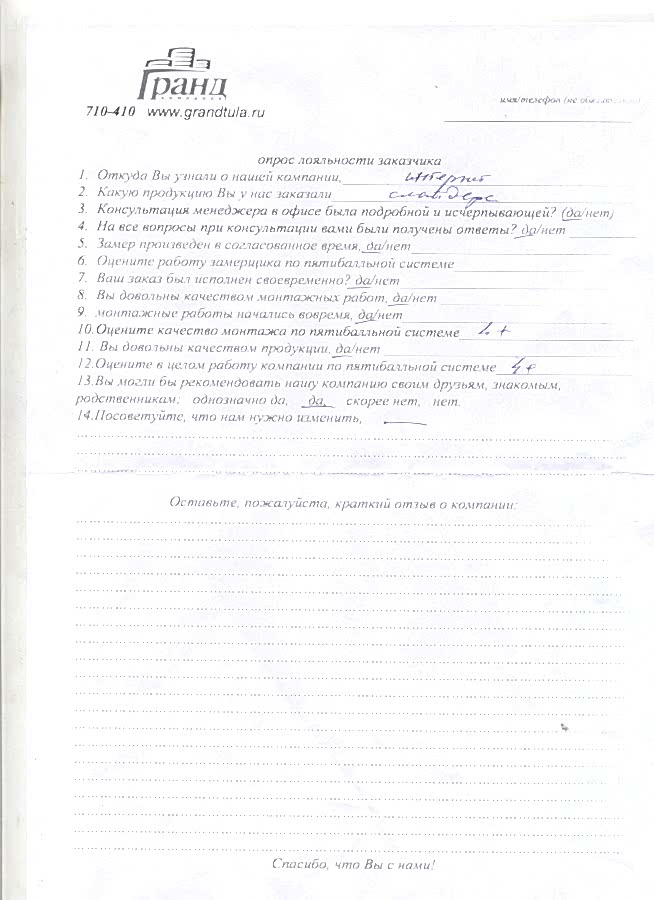 Гранд
компания
710-410 www.grandtula.ru
имя/телефон (не обязательно)
опрос лояльности заказчика
1. Откуда Вы узнали о нашей компании, интернет
2. Какую продукцию Вы у нас заказали слайдерс
3. Консультация менеджера в офисе была подробной и исчерпывающей? (да/нет)
4. На все вопросы при консультации вами были получены ответы? да/нет
5. Замер произведен в согласованное время, да/нет
6. Оцените работу замерщика по пятибалльной системе
7. Ваш заказ был исполнен своевременно? да/нет
8. Вы довольны качеством монтажных работ, да/нет
9. монтажные работы начались вовремя, да/нет
10.Оцените качество монтажа по пятибалльной системе 4+
11. Вы довольны качеством продукции, да/нет
12.Оцените в целом работу компании по пятибалльной системе 4+
13.Вы могли бы рекомендовать нашу компанию своим друзьям, знакомым,
родственникам: однозначно да, да, скорее нет, нет.
14.Посоветуйте, что нам нужно изменить,
Оставьте, пожалуйста, краткий отзыв о компании:
Спасибо, что Вы с нами!